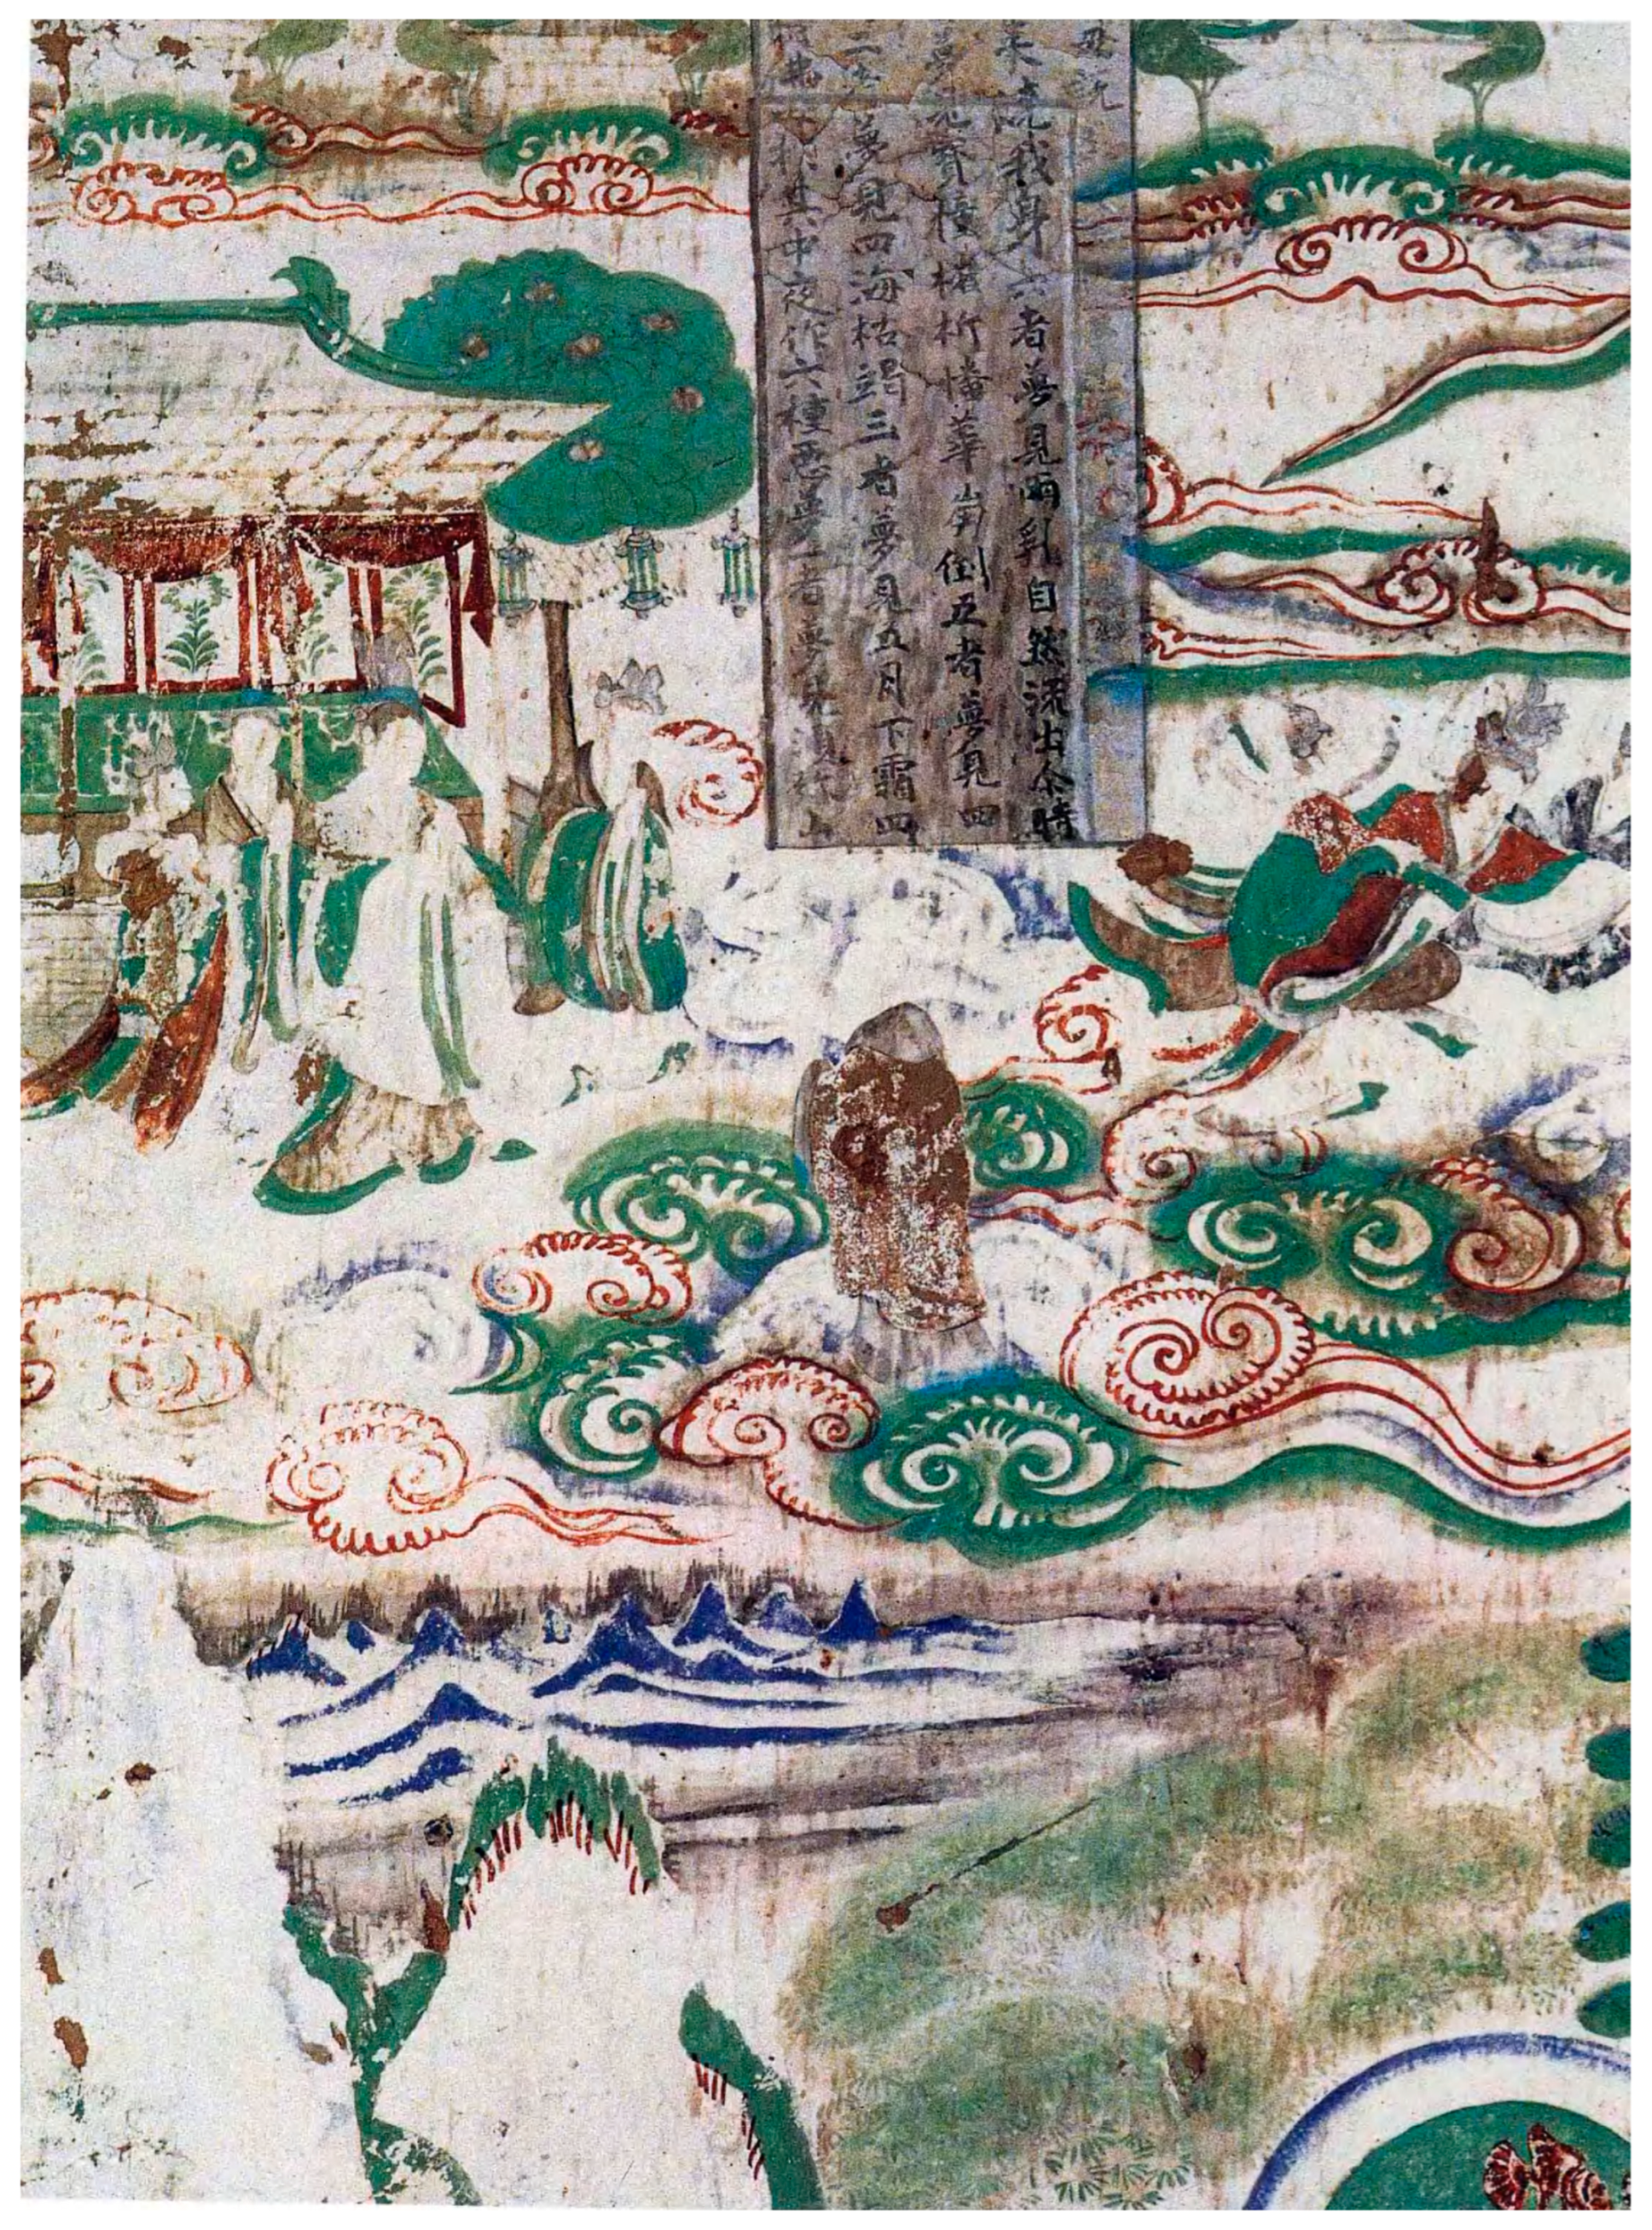 於其中夜作六種惡夢一者夢見須弥山
二者夢見四海枯竭三者夢見五月下霜四
夢見寶幢摧折幡華崩倒五者夢見四
我身六者夢見兩乳自然流出尒時